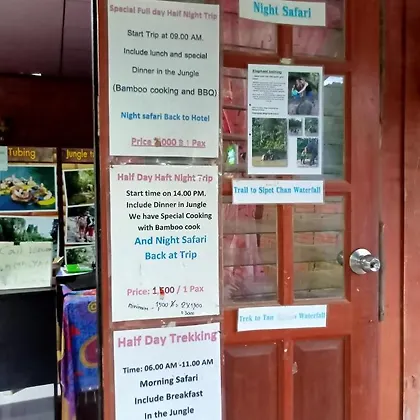 Special Full day Half Night Trip
Start Trip at 09.00 AM.
Include lunch and special
Dinner in the Jungle
(Bamboo cooking and BBQ)
Night safari Back to Hotel
Price 000 ฿ 1 Pax
Half Day Haft Night Trip
Start time on 14.00 PM.
Include Dinner in Jungle
We have Special Cooking
with Bamboo cook
And Night Safari
Back at Trip
Price: 1,500 / 1 Pax
Half Day Trekking
Time: 06.00 AM -11.00 AM
Morning Safari
Include Breakfast
In the Jungle
Night Safari
Elephant bathing
Trail to Sipet Chan Waterfall
Trek to Ton Waterfall
Tubing
Jungle